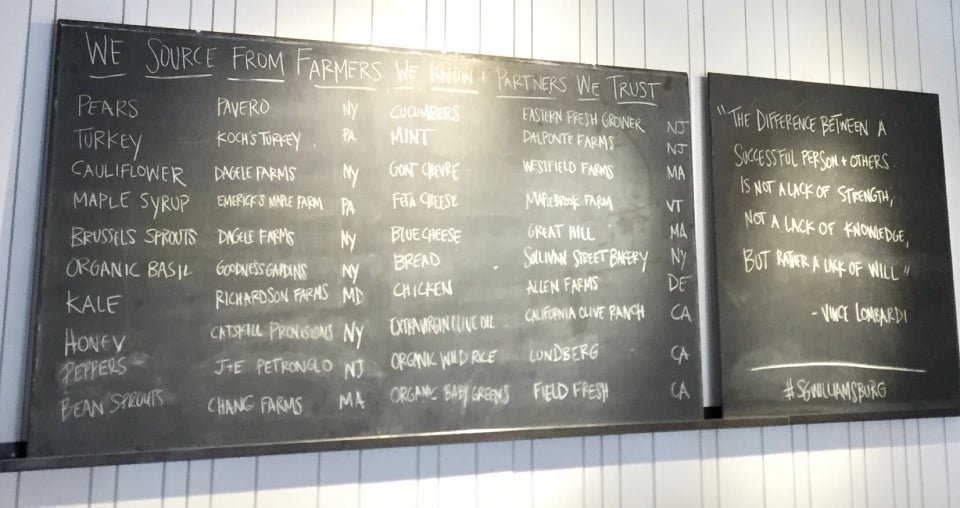 WE SOURCE FROM FARMERS WE KNOW + PARTNERS WE TRUST
PEARS PAVERO NY
TURKEY KOCH'S TURKEY PA
CAULIFLOWER DAGELE FARMS NY
MAPLE SYRUP EMERICK'S MAPLE FARM PA
BRUSSELS SPROUTS DAGELE FARMS NY
ORGANIC BASIL GOODNESS GARDENS NY
KALE RICHARDSON FARMS MD
HONEY CATSKILL PROVISIONS NY
PEPPERS J+E PETRONGLO NJ
BEAN SPROUTS CHANG FARMS MA
CUCUMBERS EASTERN FRESH GROWER NJ
MINT DALPONTE FARMS NJ
GOAT CHEVRE WESTFIELD FARMS MA
FETA CHEESE MAPLEBROOK FARM VT
BLUE CHEESE GREAT HILL MA
BREAD SULLIVAN STREET BAKERY NY
CHICKEN ALLEN FARMS DE
EXTRA VIRGIN OLIVE OIL CALIFORNIA OLIVE RANCH CA
ORGANIC WILD RICE LUNDBERG CA
ORGANIC BABY GREENS FIELD FRESH CA
"THE DIFFERENCE BETWEEN A
SUCCESSFUL PERSON + OTHERS
IS NOT A LACK OF STRENGTH,
NOT A LACK OF KNOWLEDGE,
BUT RATHER A LACK OF WILL"
- VINCE LOMBARDI
#SGWILLIAMSBURG